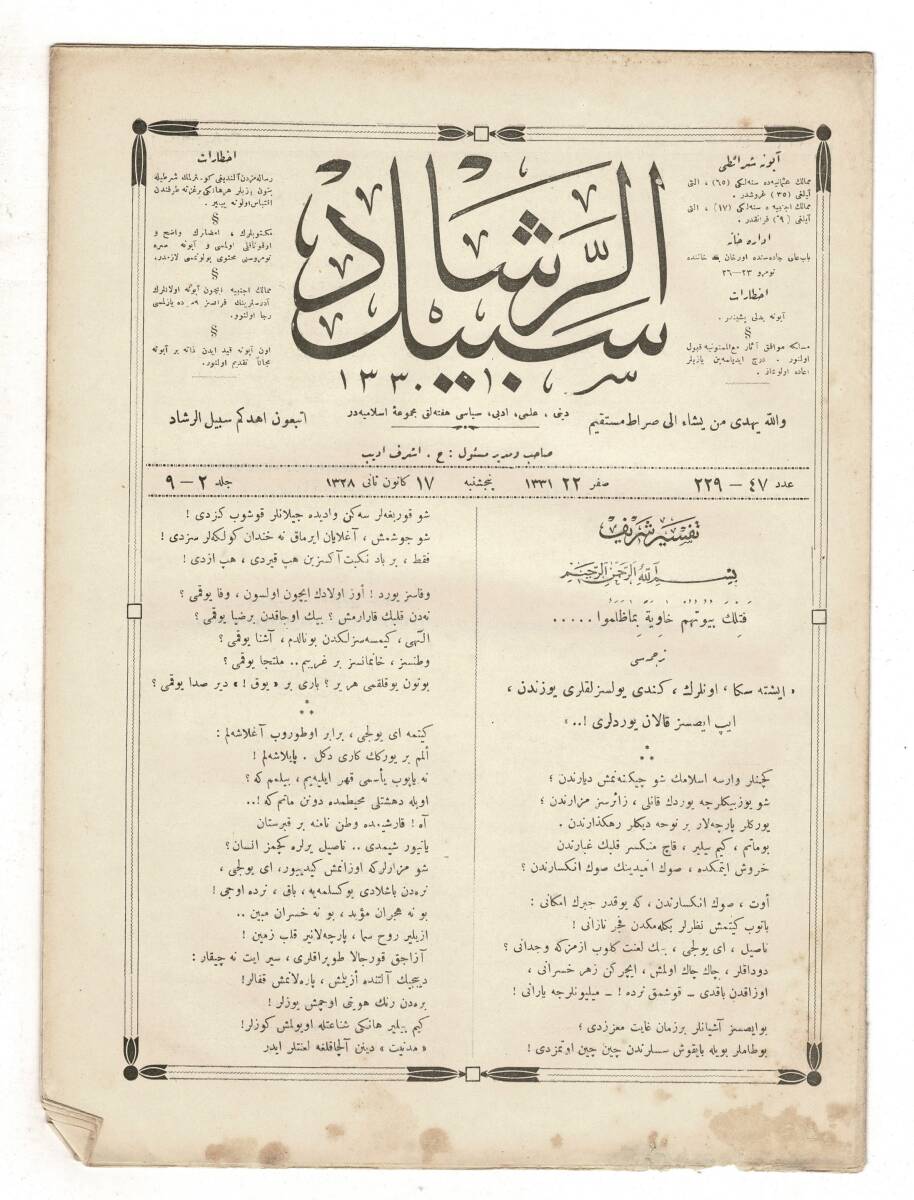 آبونه شرائطی
ممالك عثمانیه‌ده سنه‌لكی (٦٥) ، التی
آیلغی (٣٥) غروشدر .
ممالك اجنبیه‌ده سنه‌لكی (١٧) ، التی
آیلغی (٩) فرانقدر .
اداره خانه
باب عالی جاده‌سنده
نومرو ٢٣—٢٦
اخطارات
آبونه بدلی پشیندر .
§
مسلكه موافق آثار مع الممنونیه قبول
اولنور . درج ایدلمه‌ین یازیلر
اعاده اولونماز .
اخطارات
رساله‌مزدن آلندیغی كوسترلمك شرطیله
بتون یازیلر هر هانكی بر غزته طرفندن
اقتباس اولونه بیلیر .
§
مكتوبلرك ، امضالرك واضح و
اوقوناقلی اولمسی و آبونه صره
نومروسنی محتوی بولونمسی لازمدر .
§
ممالك اجنبیه ایچون آبونه اولانلرك
آدرسلرینك فرانسزجه ده یازلمسی
رجا اولنور .
§
اون آبونه قید ایدن ذاته بر آبونه
مجاناً تقدیم اولنور .
سبیل الرشاد
١٣٣٠
والله یهدی من یشاء الی صراط مستقیم
دینی ، علمی ، ادبی ، سیاسی هفته‌لق مجموعهٔ اسلامیه‌در
اتبعون اهدكم سبیل الرشاد
صاحب و مدیر مسئول : ح . اشرف ادیب
عدد ٤٧ — ٢٢٩ صفر ٢٢ ١٣٣١ پنجشنبه ١٧ كانون ثانی ١٣٢٨ جلد ٢ — ٩
تفسیر شریف
بسم الله الرحمن الرحیم
فَتِلْكَ بیوتهم خاویة بِماظلموا . . . . .
ترجمه‌سی
« ایشته سكا ، اونلرك ، كندی یولسزلقلری یوزندن ،
ایپ ایصسز قالان یوردلری !.. »
كچنلر وارسه اسلامك شو چیكنه‌نمش دیارندن ؛
شو یوزبیكلرجه یوردك قانلی ، زائرسز مزارندن ؛
یوركلر پارچه‌لار بر نوحه دیكلر رهكذارندن .
بوماتم ، كیم بیلیر ، قاچ منكسر قلبك غبارندن
خروش ایتمكده ، صوك امیدینك صوك انكسارندن ؟
أوت ، صوك انكسارندن ، كه یوقدر جبرك امكانی :
باتوب كیتمش نظرلر بكله‌مكدن فجر نازانی !
ناصیل ، ای یولجی ، بیك لعنت كلوب ازمز كه وجدانی ؟
دوداقلر ، چاك چاك اولمش ، ایچركن زهر خسرانی ،
اوزاقدن باقدی ــ قوشمق نرده ! ــ میلیونلرجه یارانی !
بوایصسز آشیانلر برزمان غایت معززدی ؛
بوطاملر بویله بایقوش سسلرندن چین چین اوتمزدی !
شو قوریغه‌لر سه‌كن وادیده جیلانلر قوشوب كزدی !
شو جوشمش ، آغلایان ایرماق نه خندان كولكه‌لر سزدی !
فقط ، بر باد نكبت آكسزین هپ قیردی ، هپ ازدی !
وفاسز یورد ! أوز اولادك ایچون اولسون ، وفا یوقمی ؟
نه‌دن قلبك قارارمش ؟ بیك اوجاقدن برضیا یوقمی ؟
الٓهی ، كیمسه‌سزلكدن بونالدم ، آشنا یوقمی ؟
وطنسز ، خانمانسز بر غریبم .. ملتجا یوقمی ؟
بوتون یوقلقمی هر یر ؟ باری بر « یوق ! » دیر صدا یوقمی ؟
كیتمه ای یولجی ، برابر اوطوروب آغلاشه‌لم :
المم بر یوركك كاری دكل . پایلاشه‌لم !
نه یاپوب یأسمی قهر ایلیه‌یم ، بیلمم كه ؟
اویله دهشتلی محیطمده دونن ماتم كه !..
آه ! قارشیمده وطن نامنه بر قبرستان
یاتیور شیمدی .. ناصیل یرلره كچمز انسان ؟
شو مزارلر كه اوزانمش كیدییور، ای یولجی ،
نره‌دن باشلادی یوكسلمه‌یه ، باق ، نرده اوجی !
بو نه هجران مؤبد ، بو نه خسران مبین ..
ازیلیر روح سما ، پارچه‌لانیر قلب زمین !
آزاجق قورجالا طوپراقلری ، سیر ایت نه چیقار :
دیپجیك آلتنده أزیلمش ، پاره‌لانمش قفالر !
بره‌دن رنك هویتی اوچمش یوزلر !
كیم بیلیر هانكی شناعتله اویولمش كوزلر !
« مدنیت » دینن آلچاقلغه لعنتلر ایدر